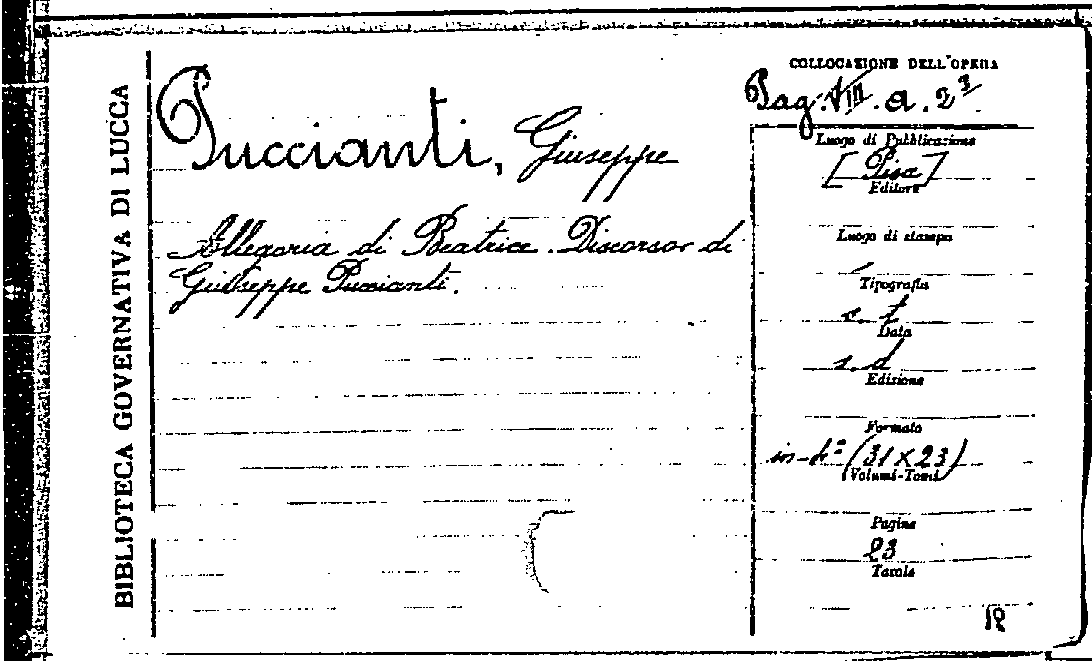 BIBLIOTECA GOVERNATIVA DI LUCCA
Puccianti, Giuseppe
Allegoria di Beatrice. Discorsor di
Giuseppe Puccianti.
COLLOCAZIONE DELL'OPERA
Pag. VIII. a. 2
Luogo di Pubblicazione
[Pisa]
Editore
Luogo di stampa
Tipografia
s. t
Data
s. d
Edizione
Formato
in-4º (31 X 23)
Volumi-Tomi
Pagine
23
Tavole